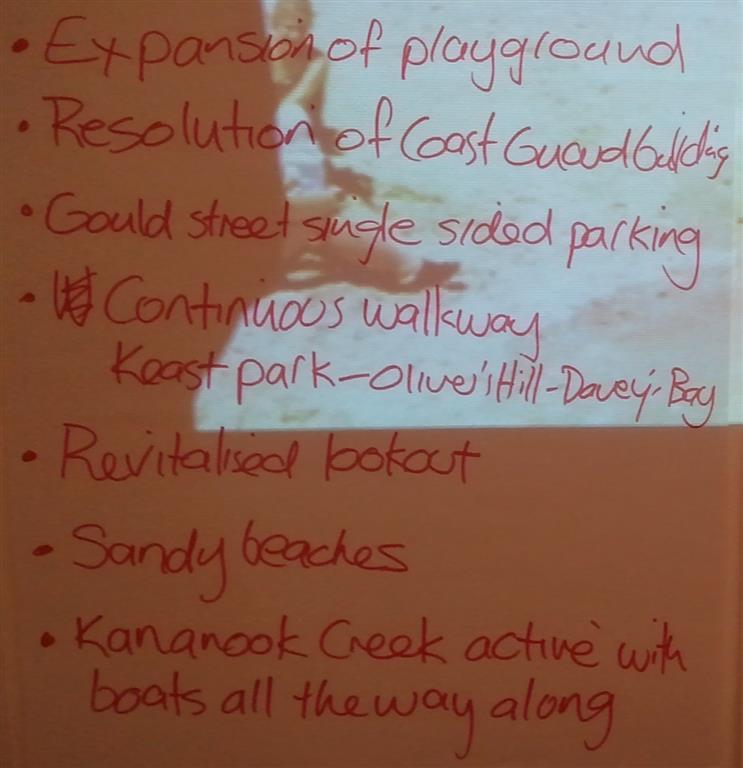 • Expansion of playground
• Resolution of Coast Guard building
• Gould street single sided parking
• Continuous walkway
Keast park - Oliver's Hill - Davey's Bay
• Revitalised lookout
• Sandy beaches
• Kananook Creek active with
boats all the way along